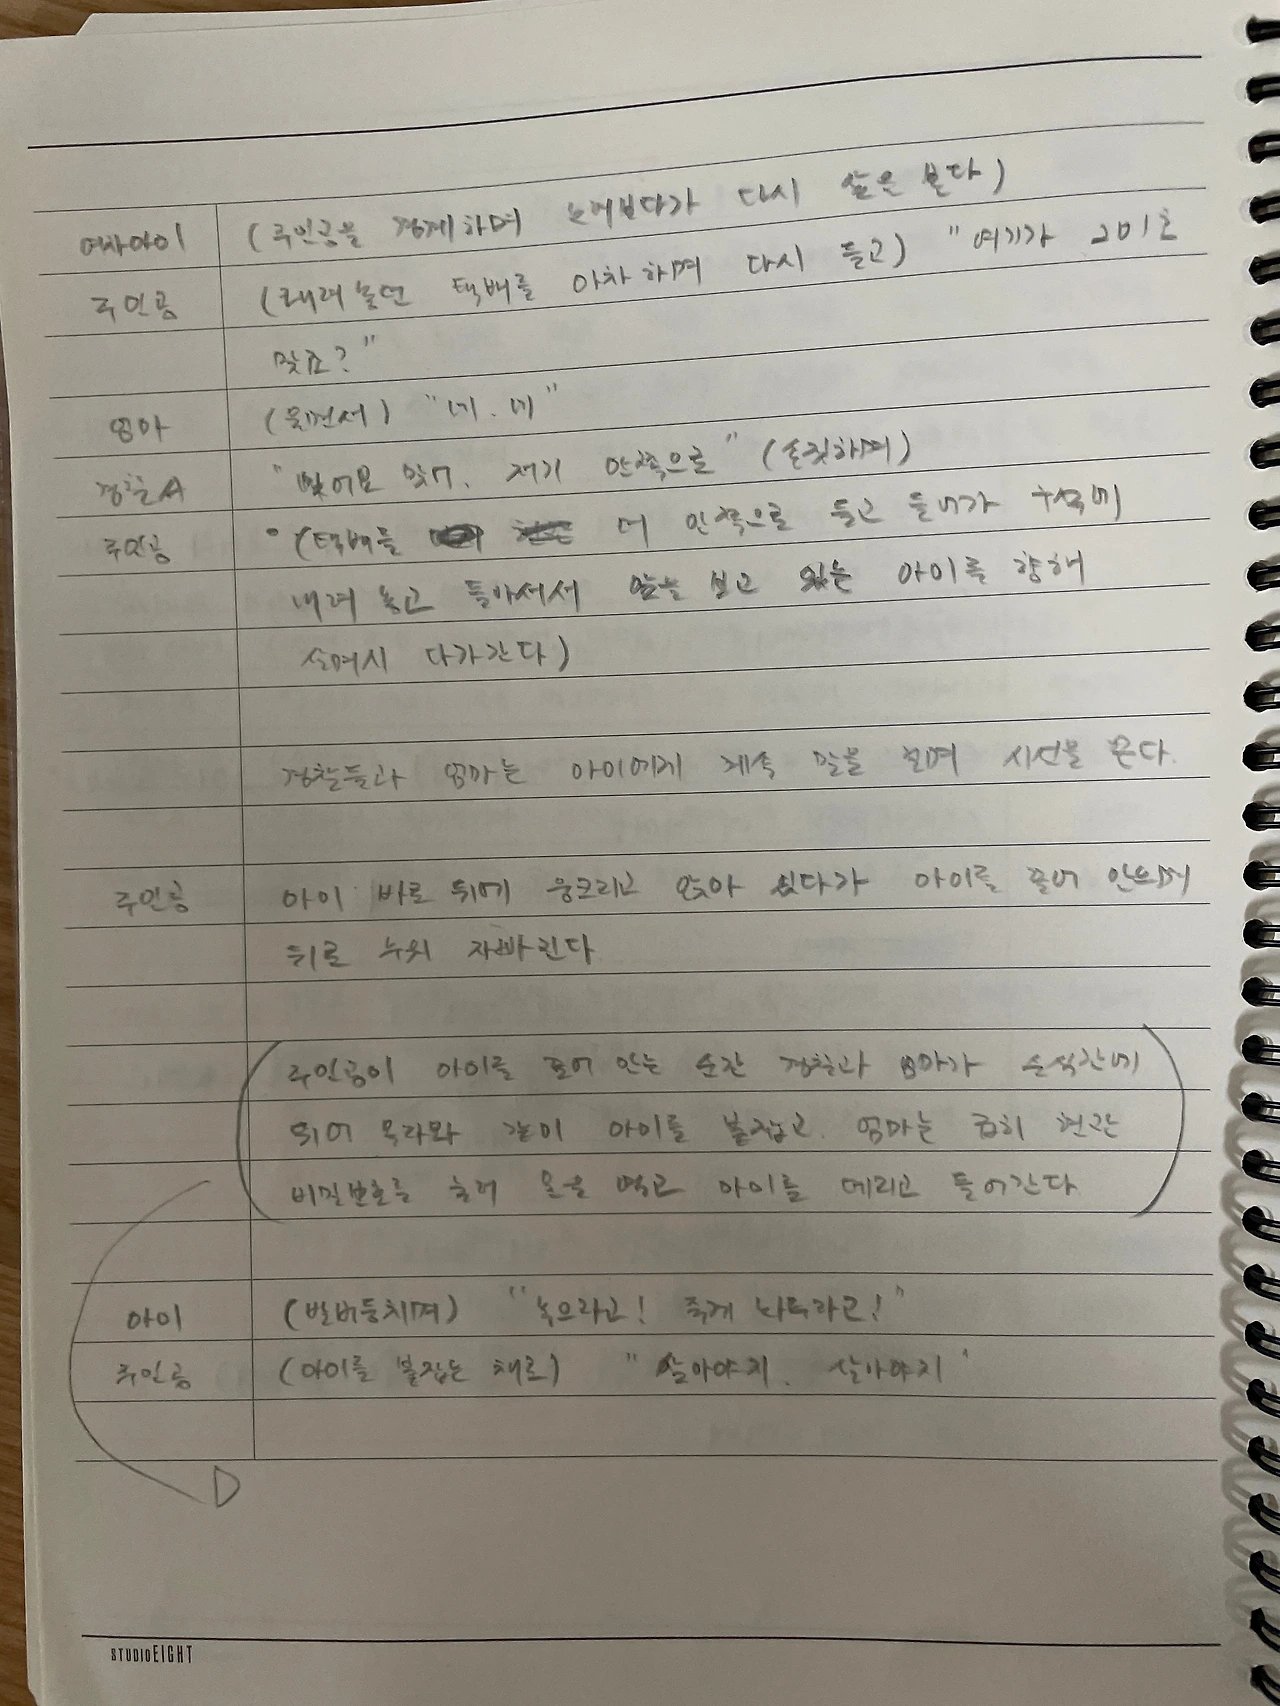 여자아이 (주인공을 경계하며 노려보다가 다시 앞을 본다)
주인공 (내려놓던 택배를 아차하며 다시 들고) "여기가 201호
맞죠?"
엄마 (울면서) "네. 네"
경찰A "맞어요 맞어. 저기 안쪽으로" (손짓하며)
주인공 (택배를 더 안쪽으로 들고 들어가 구석에
내려 놓고 돌아서서 앞을 보고 있는 아이를 향해
살며시 다가간다)
경찰들과 엄마는 아이에게 계속 말을 걸며 시선을 끈다.
주인공 아이 바로 뒤에 웅크리고 앉아 있다가 아이를 끌어 안으며
뒤로 누워 자빠진다
(주인공이 아이를 끌어 안는 순간 경찰과 엄마가 순식간에
뛰어 올라와 같이 아이를 붙잡고. 엄마는 급히 현관
비밀번호를 눌러 문을 열고 아이를 데리고 들어간다)
아이 (발버둥치며) "놓으라고! 죽게 놔두라고!"
주인공 (아이를 붙잡는 채로) "살아야지. 살아야지'
STUDIOEIGHT